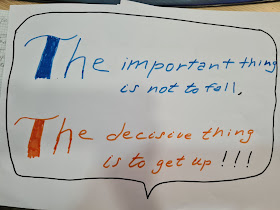 The important thing
is not to fall,
The decisive thing
is to get up!!!